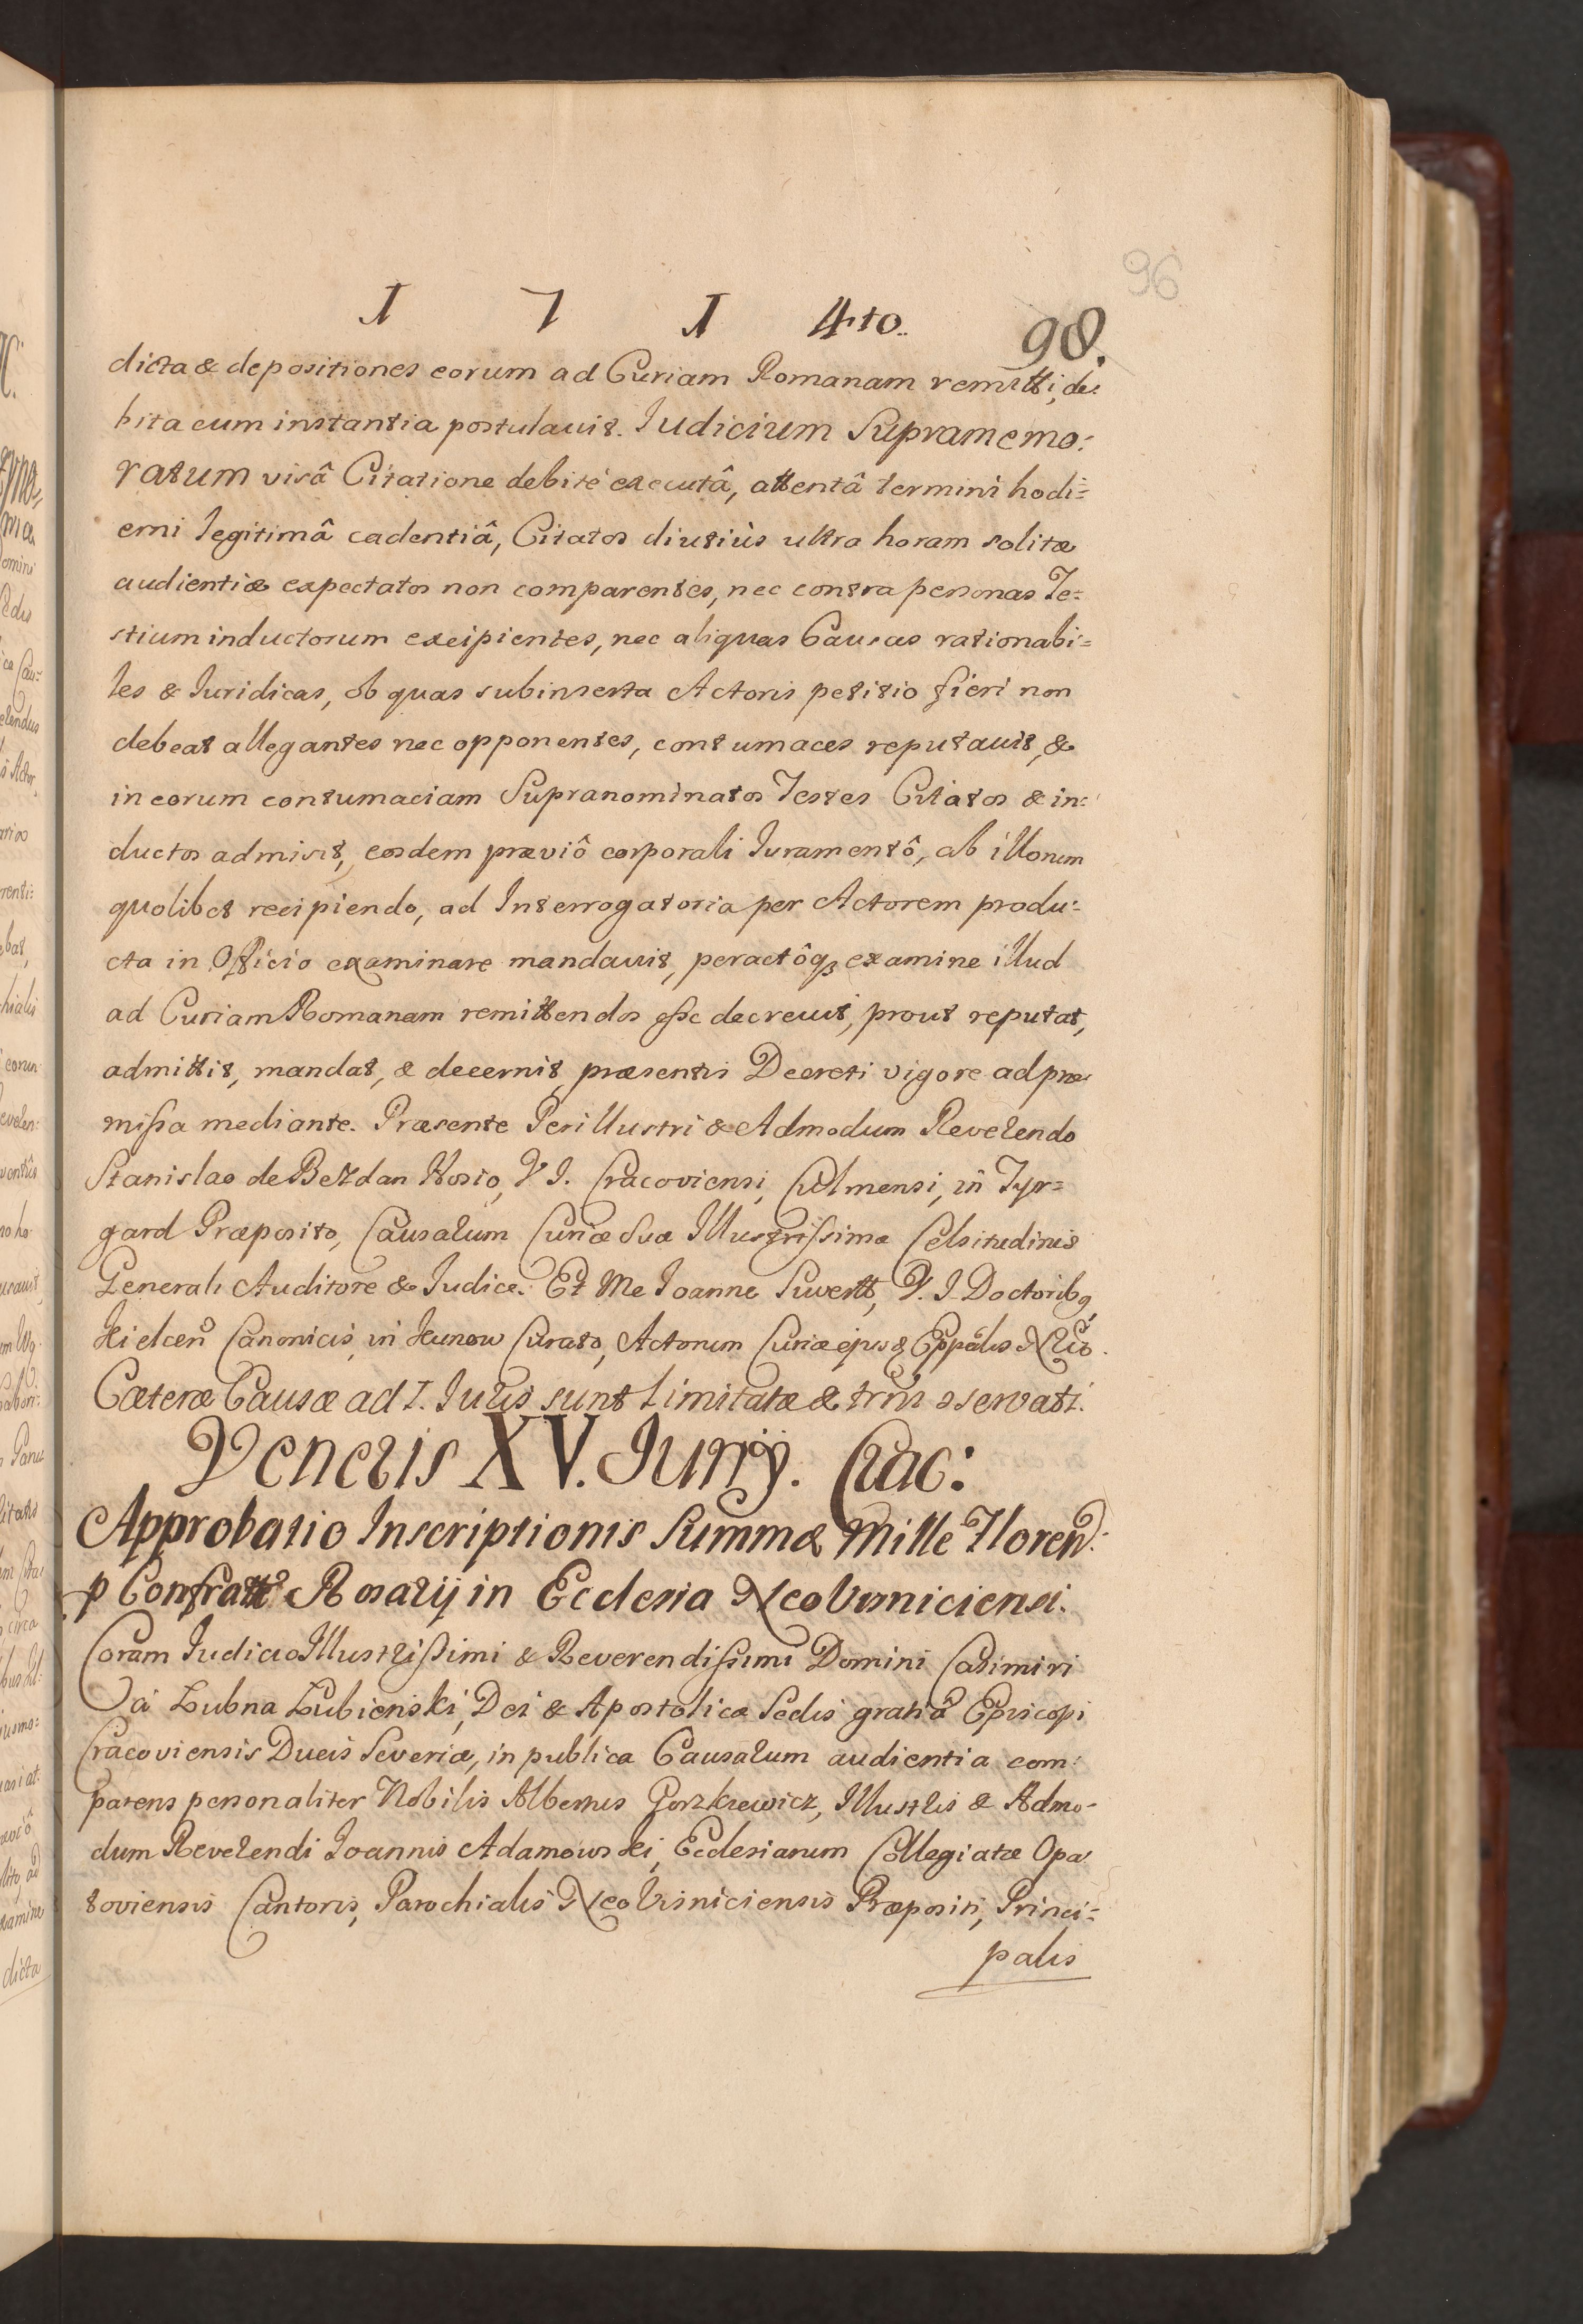 96
1 7 1 4to. 98.
dicta & depositiones eorum ad Curiam Romanam remitti, de:
bita cum instantia postulavit. Iudicium Supramemo:
ratum visâ Citatione debitè executâ, attentâ termini hodi=
erni legitimâ cadentiâ, Citatos diutiùs ultra horam solitæ
audientiæ expectatos non comparentes, nec contra personas Te=
stium inductorum excipientes, nec aliquas Causas rationabi=
les & Iuridicas, ob quas subinserta Actoris petitio fieri non
debeat allegantes nec opponentes, contumaces reputavit, &
in eorum contumaciam Supranominatos Testes Citatos & in:
ductos admisit, eosdem præviô corporali Iuramentô, ab illorum
quolibet recipiendo, ad Interrogatoria per Actorem produ:
cta in Officio examinare mandavit, peractôq3 examine illud
ad Curiam Romanam remittendos esse decrevit, prout reputat,
admittit, mandat, & decernit, præsentis Decreti vigore ad præ
missa mediante. Præsente Perillustri & Admodum Reverendo
Stanislao de Bezdan Hosio, V. I. Cracoviensi, Culmensi, in Tyr=
gard Præposito, Causarum Curiæ Suæ Illustrissimæ Celsitudinis
Generali Auditore & Iudice. Et Me Ioanne Siwertt, V. I. Doctoribq
Kielcen Canonicis, in Kunow Curato, Actorum Curiæ ejusq Eppalis Nrio.
Cæteræ Causæ ad I. Iuris sunt limitatæ & trni oservati.
Veneris XV. Iunij. Crac:
Approbatio Inscriptionis Summæ Mille Floren:
p Confratte Rosarij in Ecclesia NeoVisniciensi.
Coram Iudicio Illustrissimi & Reverendissimi Domini Casimiri
à Łubna Łubienski, Dei & Apostolicæ Sedis gratiâ Episcopi
Cracoviensis Ducis Severiæ, in publica Causarum audientia com:
parens personaliter Nobilis Albertus Gorzkiewicz, Illustris & Admo-
dum Reverendi Ioannis Adamowski, Ecclesiarum Collegiatæ Opa
toviensis Cantoris, Parochialis NeoVisniciensis Præpositi, Princi=
palis